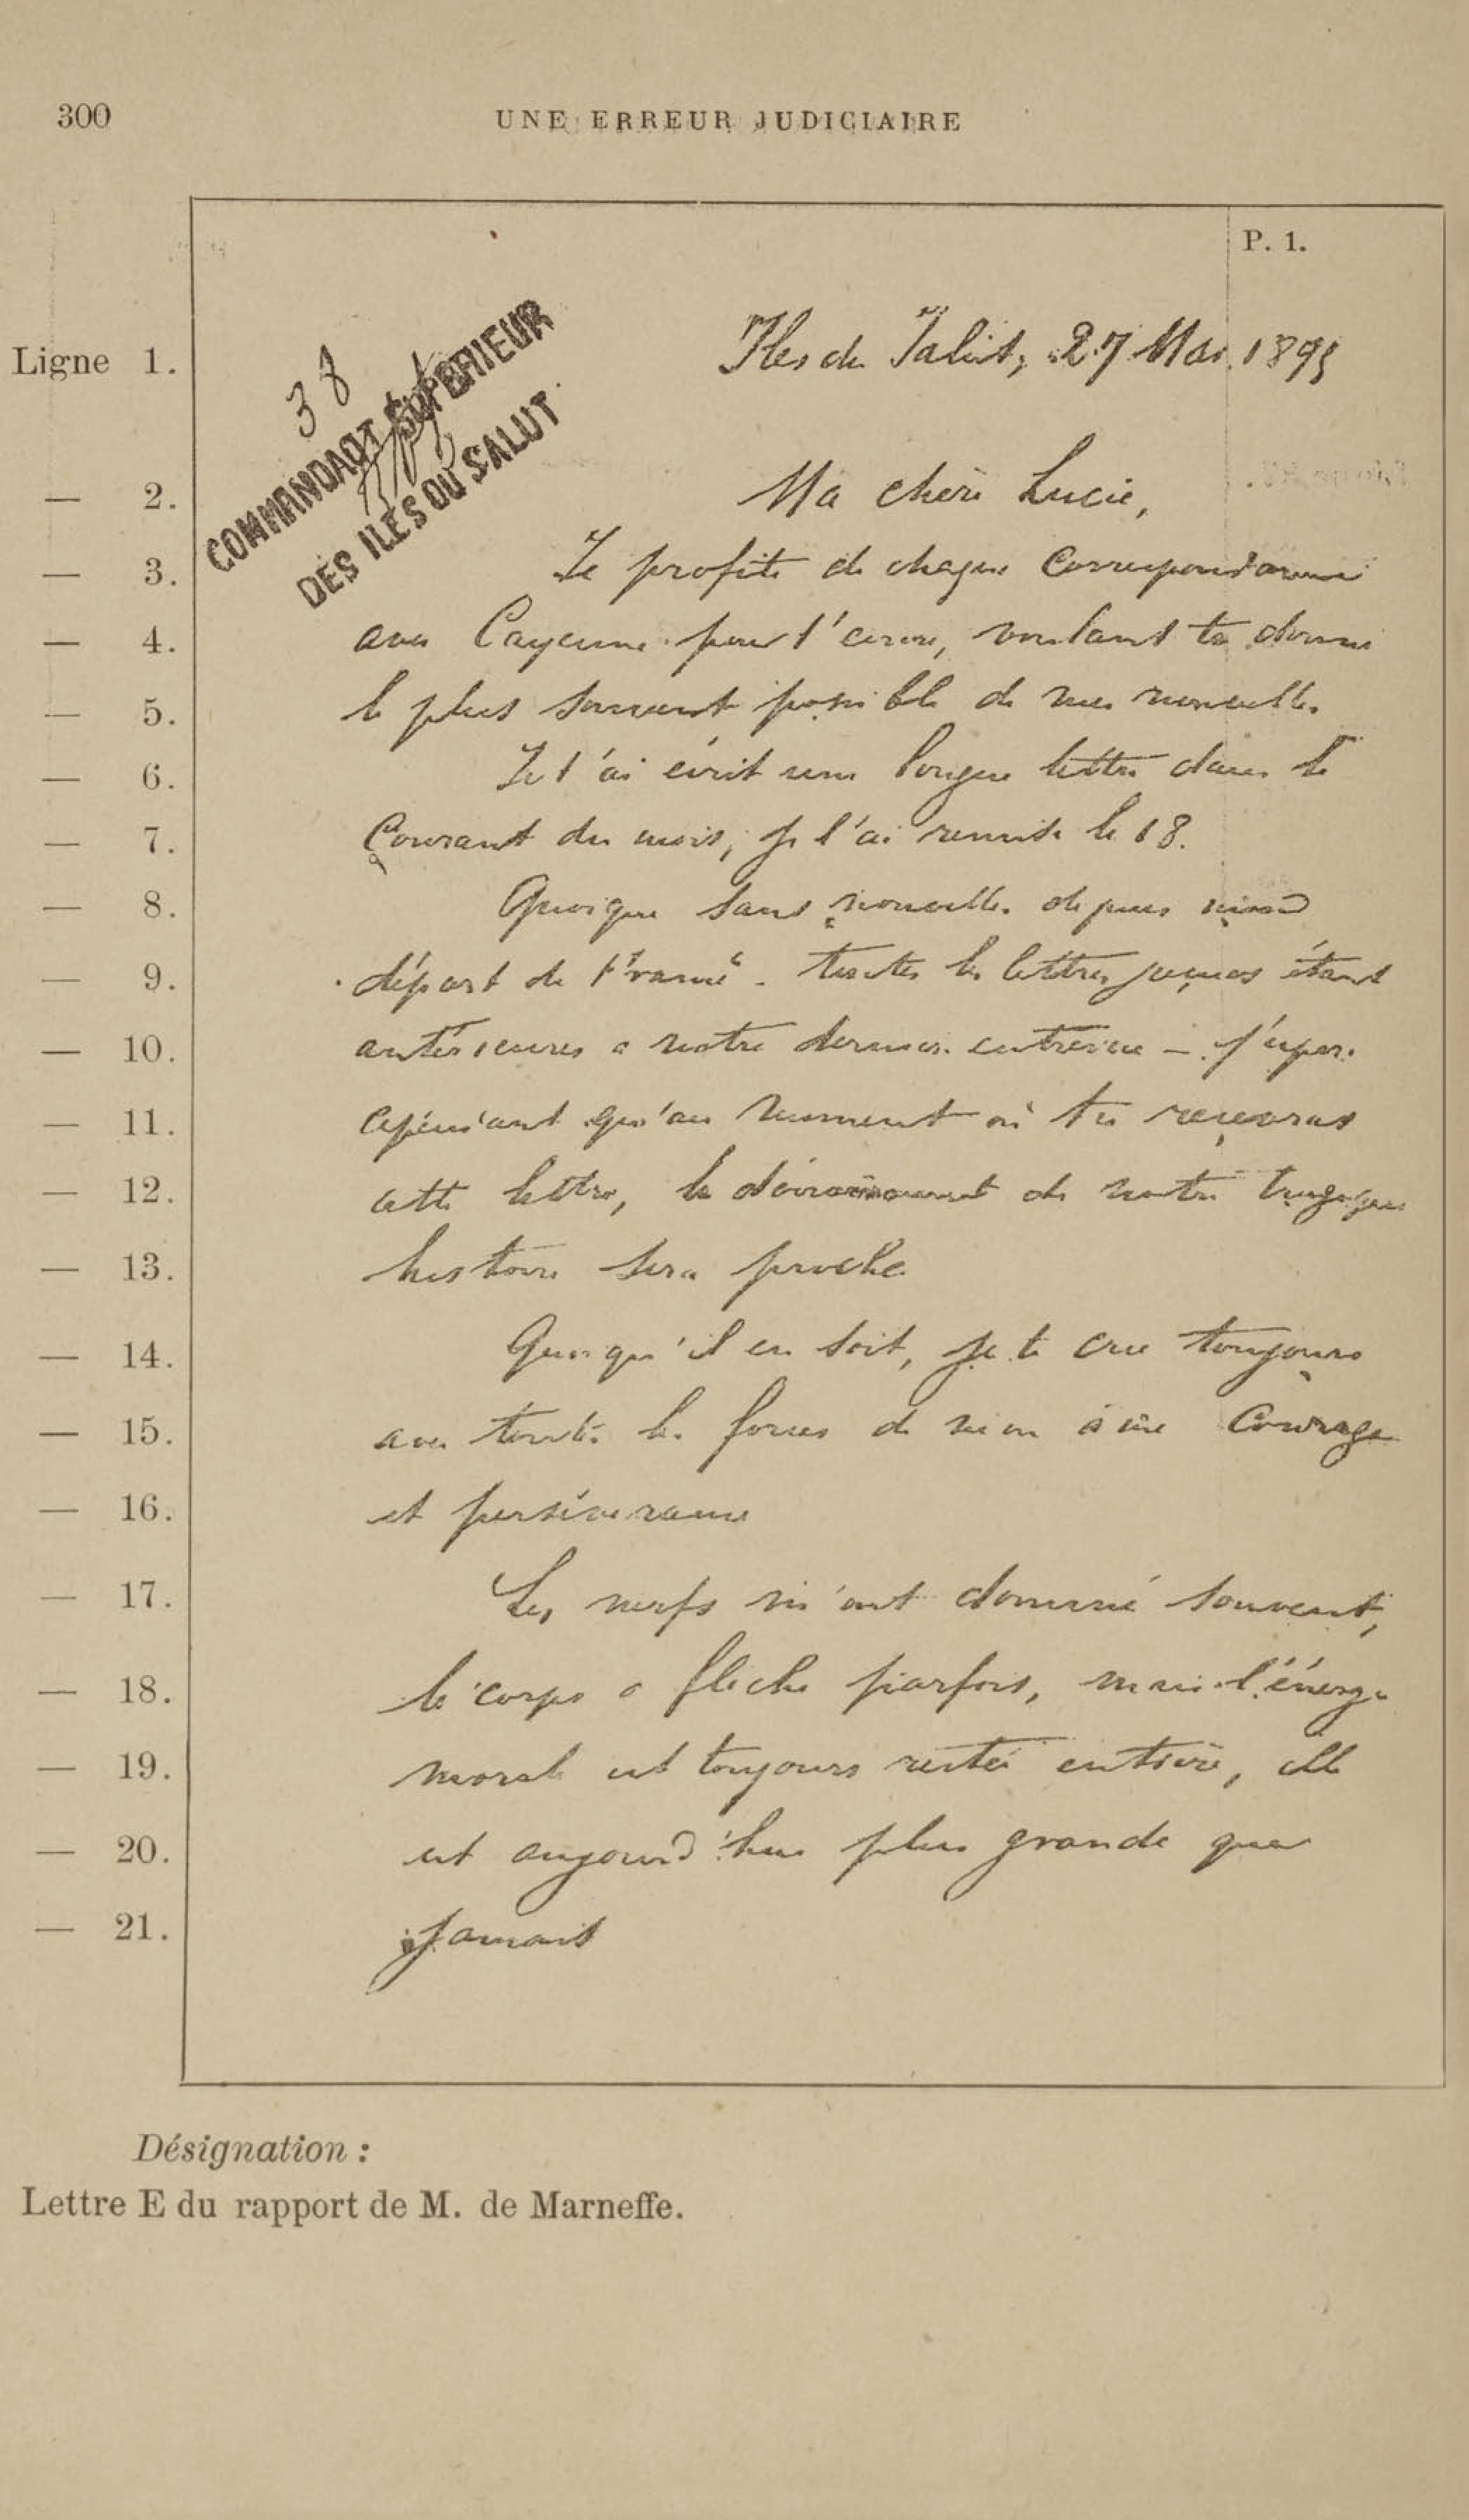 300
UNE ERREUR JUDICIAIRE
P. 1.
38
COMMANDANT SUPERIEUR
DES ILES DU SALUT
Ligne 1. Iles du Salut, 27 Mai 1895
— 2. Ma chère Lucie,
— 3. Je profite de chaque correspondance
— 4. avec Cayenne pour t'écrire, voulant te donner
— 5. le plus souvent possible de mes nouvelles.
— 6. Je t'ai écrit une longue lettre dans le
— 7. courant du mois, je l'ai remise le 18.
— 8. Quoique sans nouvelles depuis mon
— 9. départ de France - toutes les lettres reçues étant
— 10. antérieures à notre dernière entrevue - j'espère
— 11. cependant qu'au moment où tu recevras
— 12. cette lettre, le dénouement de notre tragique
— 13. histoire sera proche
— 14. Quoi qu'il en soit, je te crie toujours
— 15. avec toutes les forces de mon âme courage
— 16. et persévérance
— 17. Les nerfs m'ont dominé souvent,
— 18. le corps a fléchi parfois, mais l'énergie
— 19. morale est toujours restée entière, elle
— 20. est aujourd'hui plus grande que
— 21. jamais
Désignation :
Lettre E du rapport de M. de Marneffe.